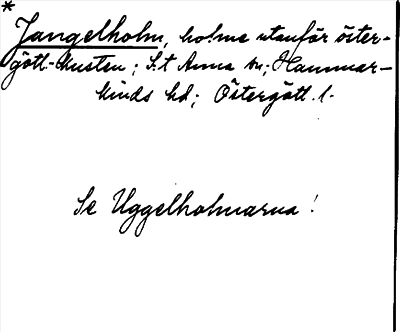 *
Jangelholm, holme utanför öster-
götl-kusten; S:t Anna sn; Hammar-
kinds hd; Östergötl. l.
Se Uggelholmarna!